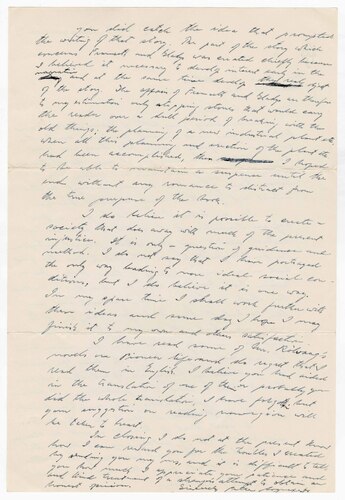 You did catch the idea that prompted
the writing of that story. The part of the story which
concerns and Gladys was created chiefly because
I believed it necessary to early in the
and at the same time
of the story. The appear of and Gladys are therefore
to my estimation only stepping stones that would carry
the reader over a dull period of breaking with the
old things, the planning of a new industrial plant etc.
when all this planning and erection of the plant etc
had been accomplished, I hoped
to be able to maintain a suspense until the
end without any romance to distract from
the true purpose of the book.
I do believe it is possible to create a
society that does away with much of the present
injustices. It is only a question of guidance and
method. I do not say that I have portrayed
the only way leading to more ideal social con-
ditions, but I do believe it is one way.
In my spare time I shall work further with
these ideas and some day I hope I may
finish it to my own and others satisfaction.
I have read some of Mr. Rölvaag's
novels on Pioneer life and the regret that I
read them in English. I believe you had aided
in the translation of one of them or probably you
did the whole translation, I have forgotten, but
your suggestion on reading norwegian will
be taken to heart.
In closing I do not at the present know
how I can reward you for the trouble I created
by sending you my and it is difficult to tell
you how much I appreciate your patience and
kind treatment of a stranger's attempt to obtain an
honest opinion. Sincerely